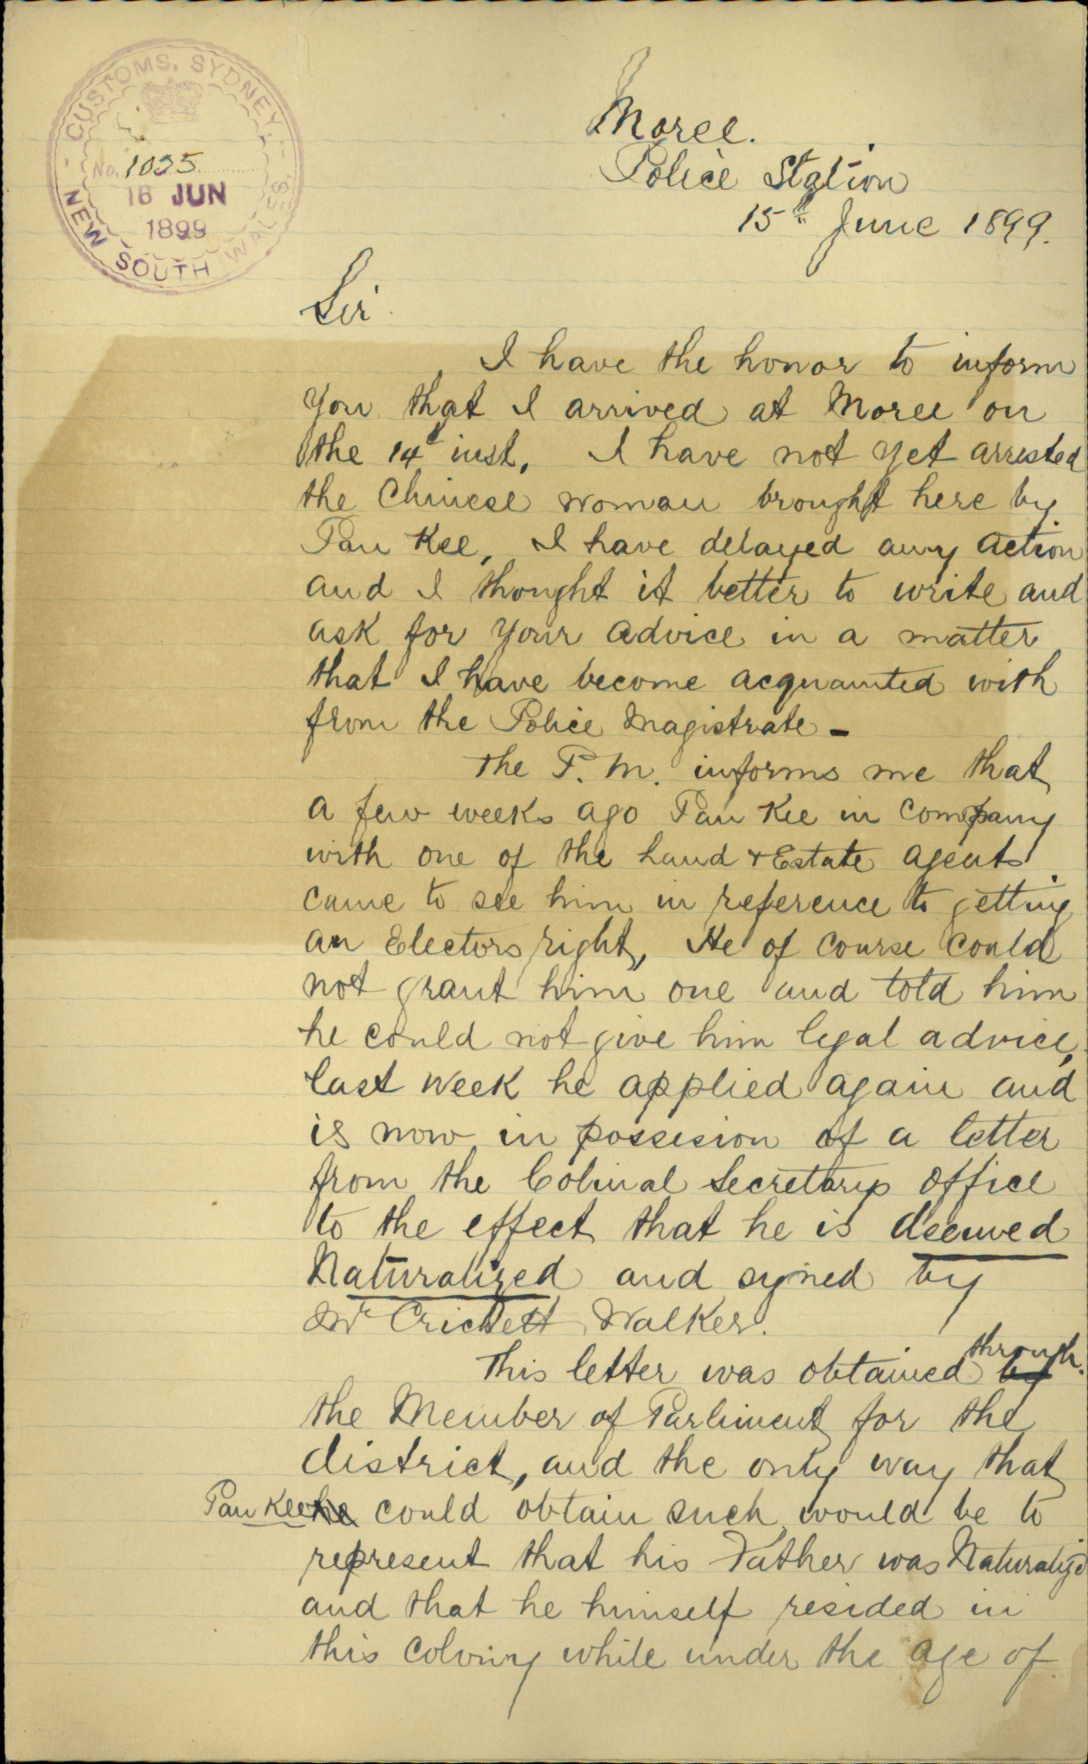 CUSTOMS, SYDNEY.
No. 1025
16 JUN
1899
NEW SOUTH WALES.
Moree.
Police Station
15th June 1899.
Sir
I have the honor to inform
you that I arrived at Moree on
the 14th inst, I have not yet arrested
the Chinese woman brought here by
Pan Kee, I have delayed any action
and I thought it better to write and
ask for your advice in a matter
that I have become acquainted with
from the Police Magistrate -
The P.M. informs me that
a few weeks ago Pan Kee in company
with one of the Land & Estate agents
came to see him in reference to getting
an Electors right, He of course could
not grant him one and told him
he could not give him legal advice,
last week he applied again and
is now in possesion of a letter
from the Colinal Secretarys office
to the effect that he is deemed
Naturalized and signed by
Mr Crickett Walker.
This letter was obtained by through.
the Member of Parliment for the
district, and the only way that
Pan Kee he could obtain such would be to
represent that his Father was Naturalizd
and that he himself resided in
this Colony while under the age of